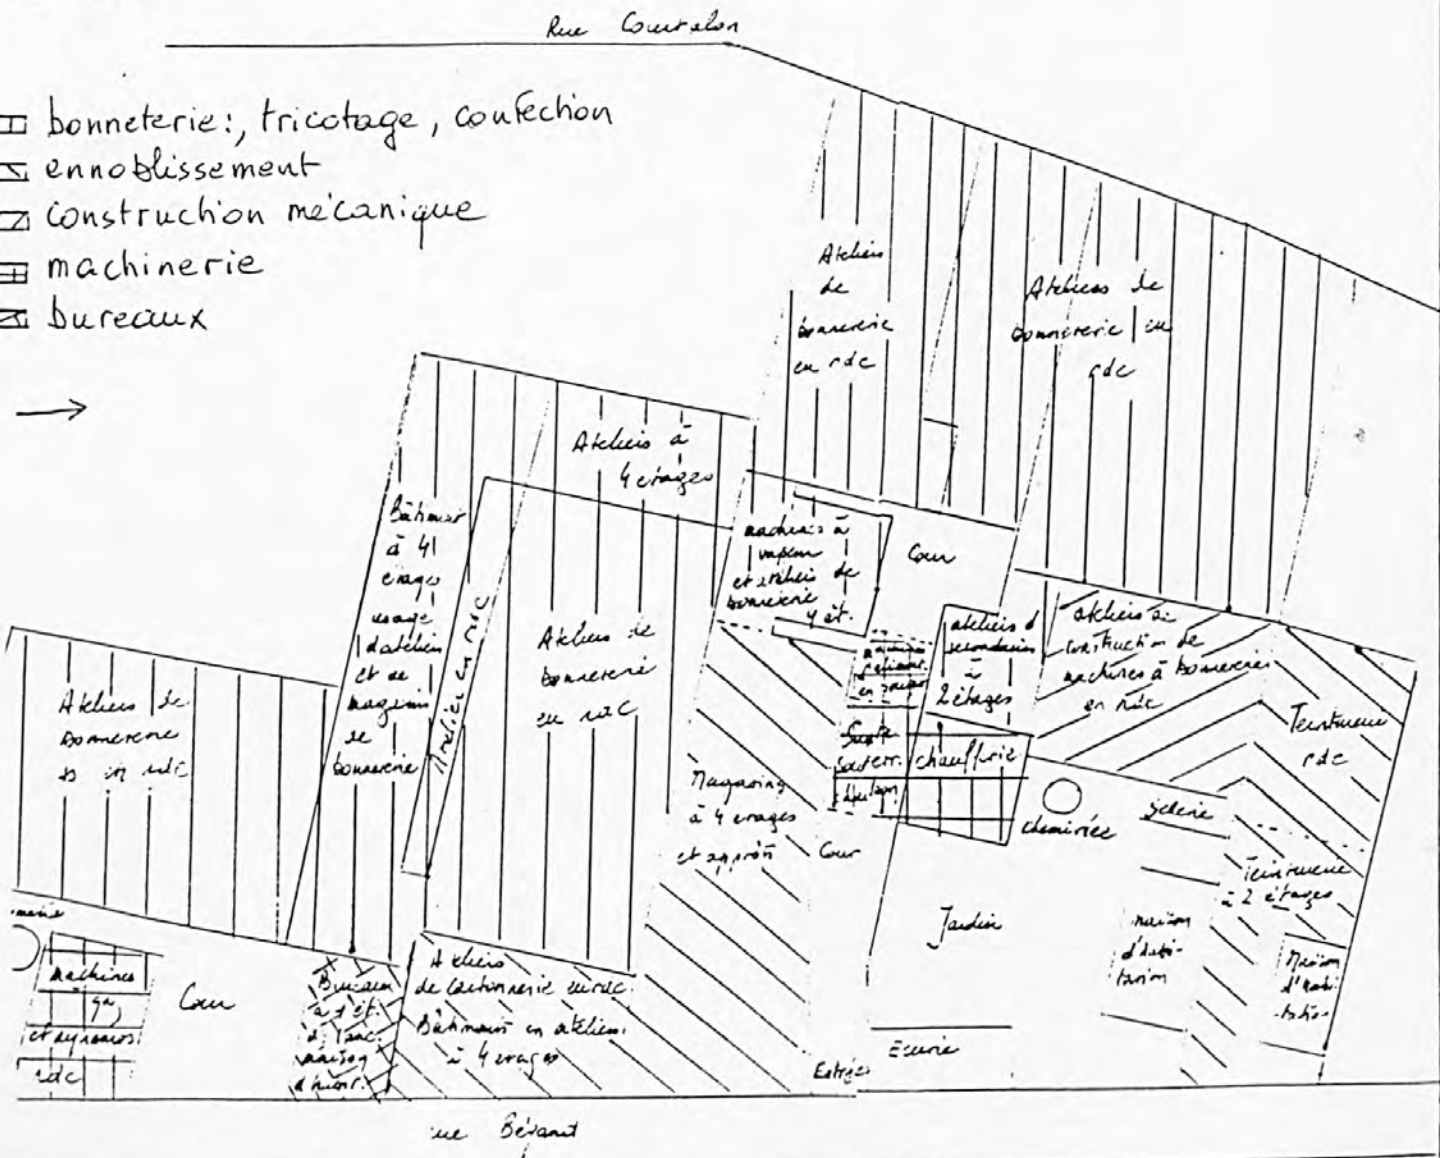 Rue Courtalon
bonneterie:, tricotage, confection
ennoblissement
construction mécanique
machinerie
bureaux
Ateliers
de
bonneterie
en rdc
Ateliers de
bonneterie en
rdc
Ateliers à
4 étages
Bâtiment
à 4
étages
usage
d'ateliers
et de
magasins
de
bonneterie
Atelier en rdc
Ateliers de
bonneterie
en rdc
machines à
vapeur
et ateliers de
bonneterie
4 ét.
Cour
ateliers
secondaires
à
2 étages
ateliers de
construction de
machines à bonneterie
en rdc
Teinturerie
rdc
Ateliers de
bonneterie
en rdc
Magasins
à 4 étages
et apprêt
Cour
souterr.
chaufferie
cheminée
Sellerie
Teinturerie
à 2 étages
Jardin
maison
d'habi-
tation
Maison
d'habi-
tatio-
machines
et dynamos
rdc
Cour
Bureaux
à 1 ét.
Ateliers
de cartonnerie en rdc.
Bâtiments en ateliers
à 4 étages
Entrée
Ecurie
ue Bégand